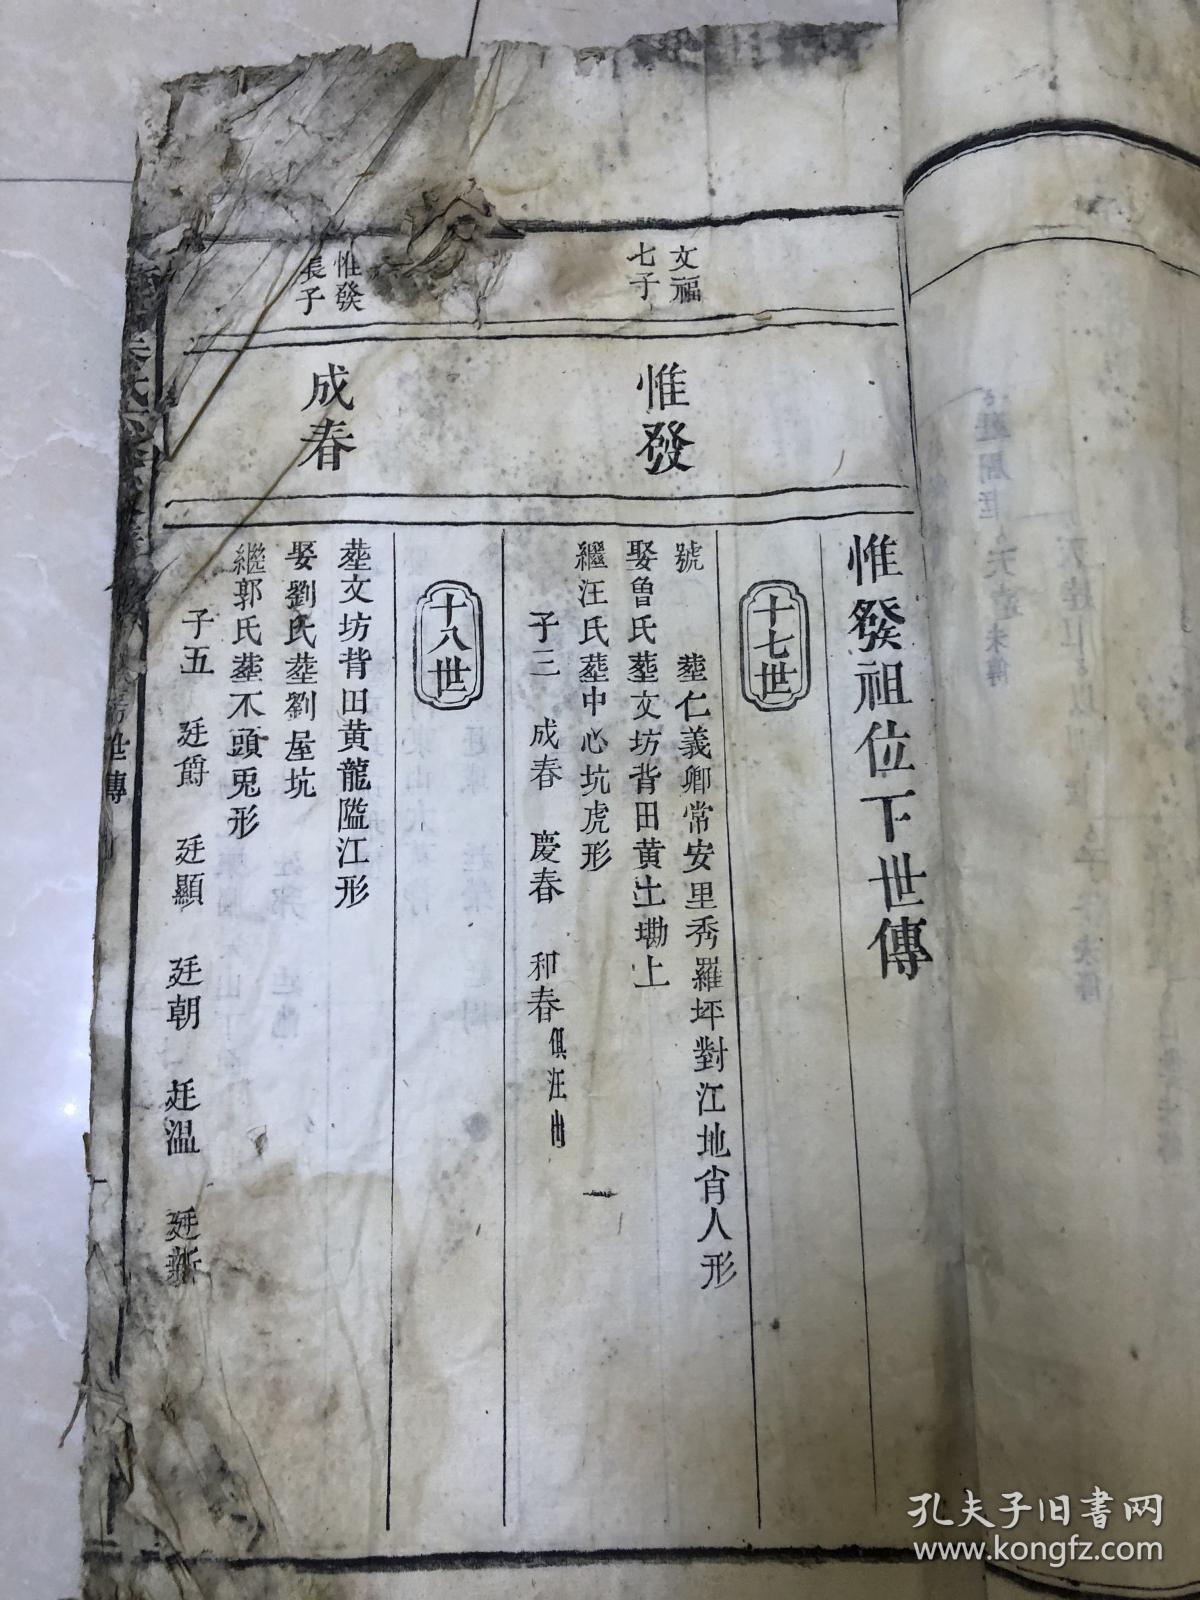 惟發祖位下世傳
文福
七子
惟發
十七世
號　葬仁義鄉常安里秀羅坪對江地肖人形
娶魯氏葬文坊背田黃土墈上
繼汪氏葬中心坑虎形
子三　成春　慶春　和春俱汪出
惟發
長子
成春
十八世
葬文坊背田黃龍隘江形
娶劉氏葬劉屋坑
繼郭氏葬不頭兎形
子五　廷爵　廷顯　廷朝　廷溫　廷新
世傳
孔夫子旧书网
www.kongfz.com